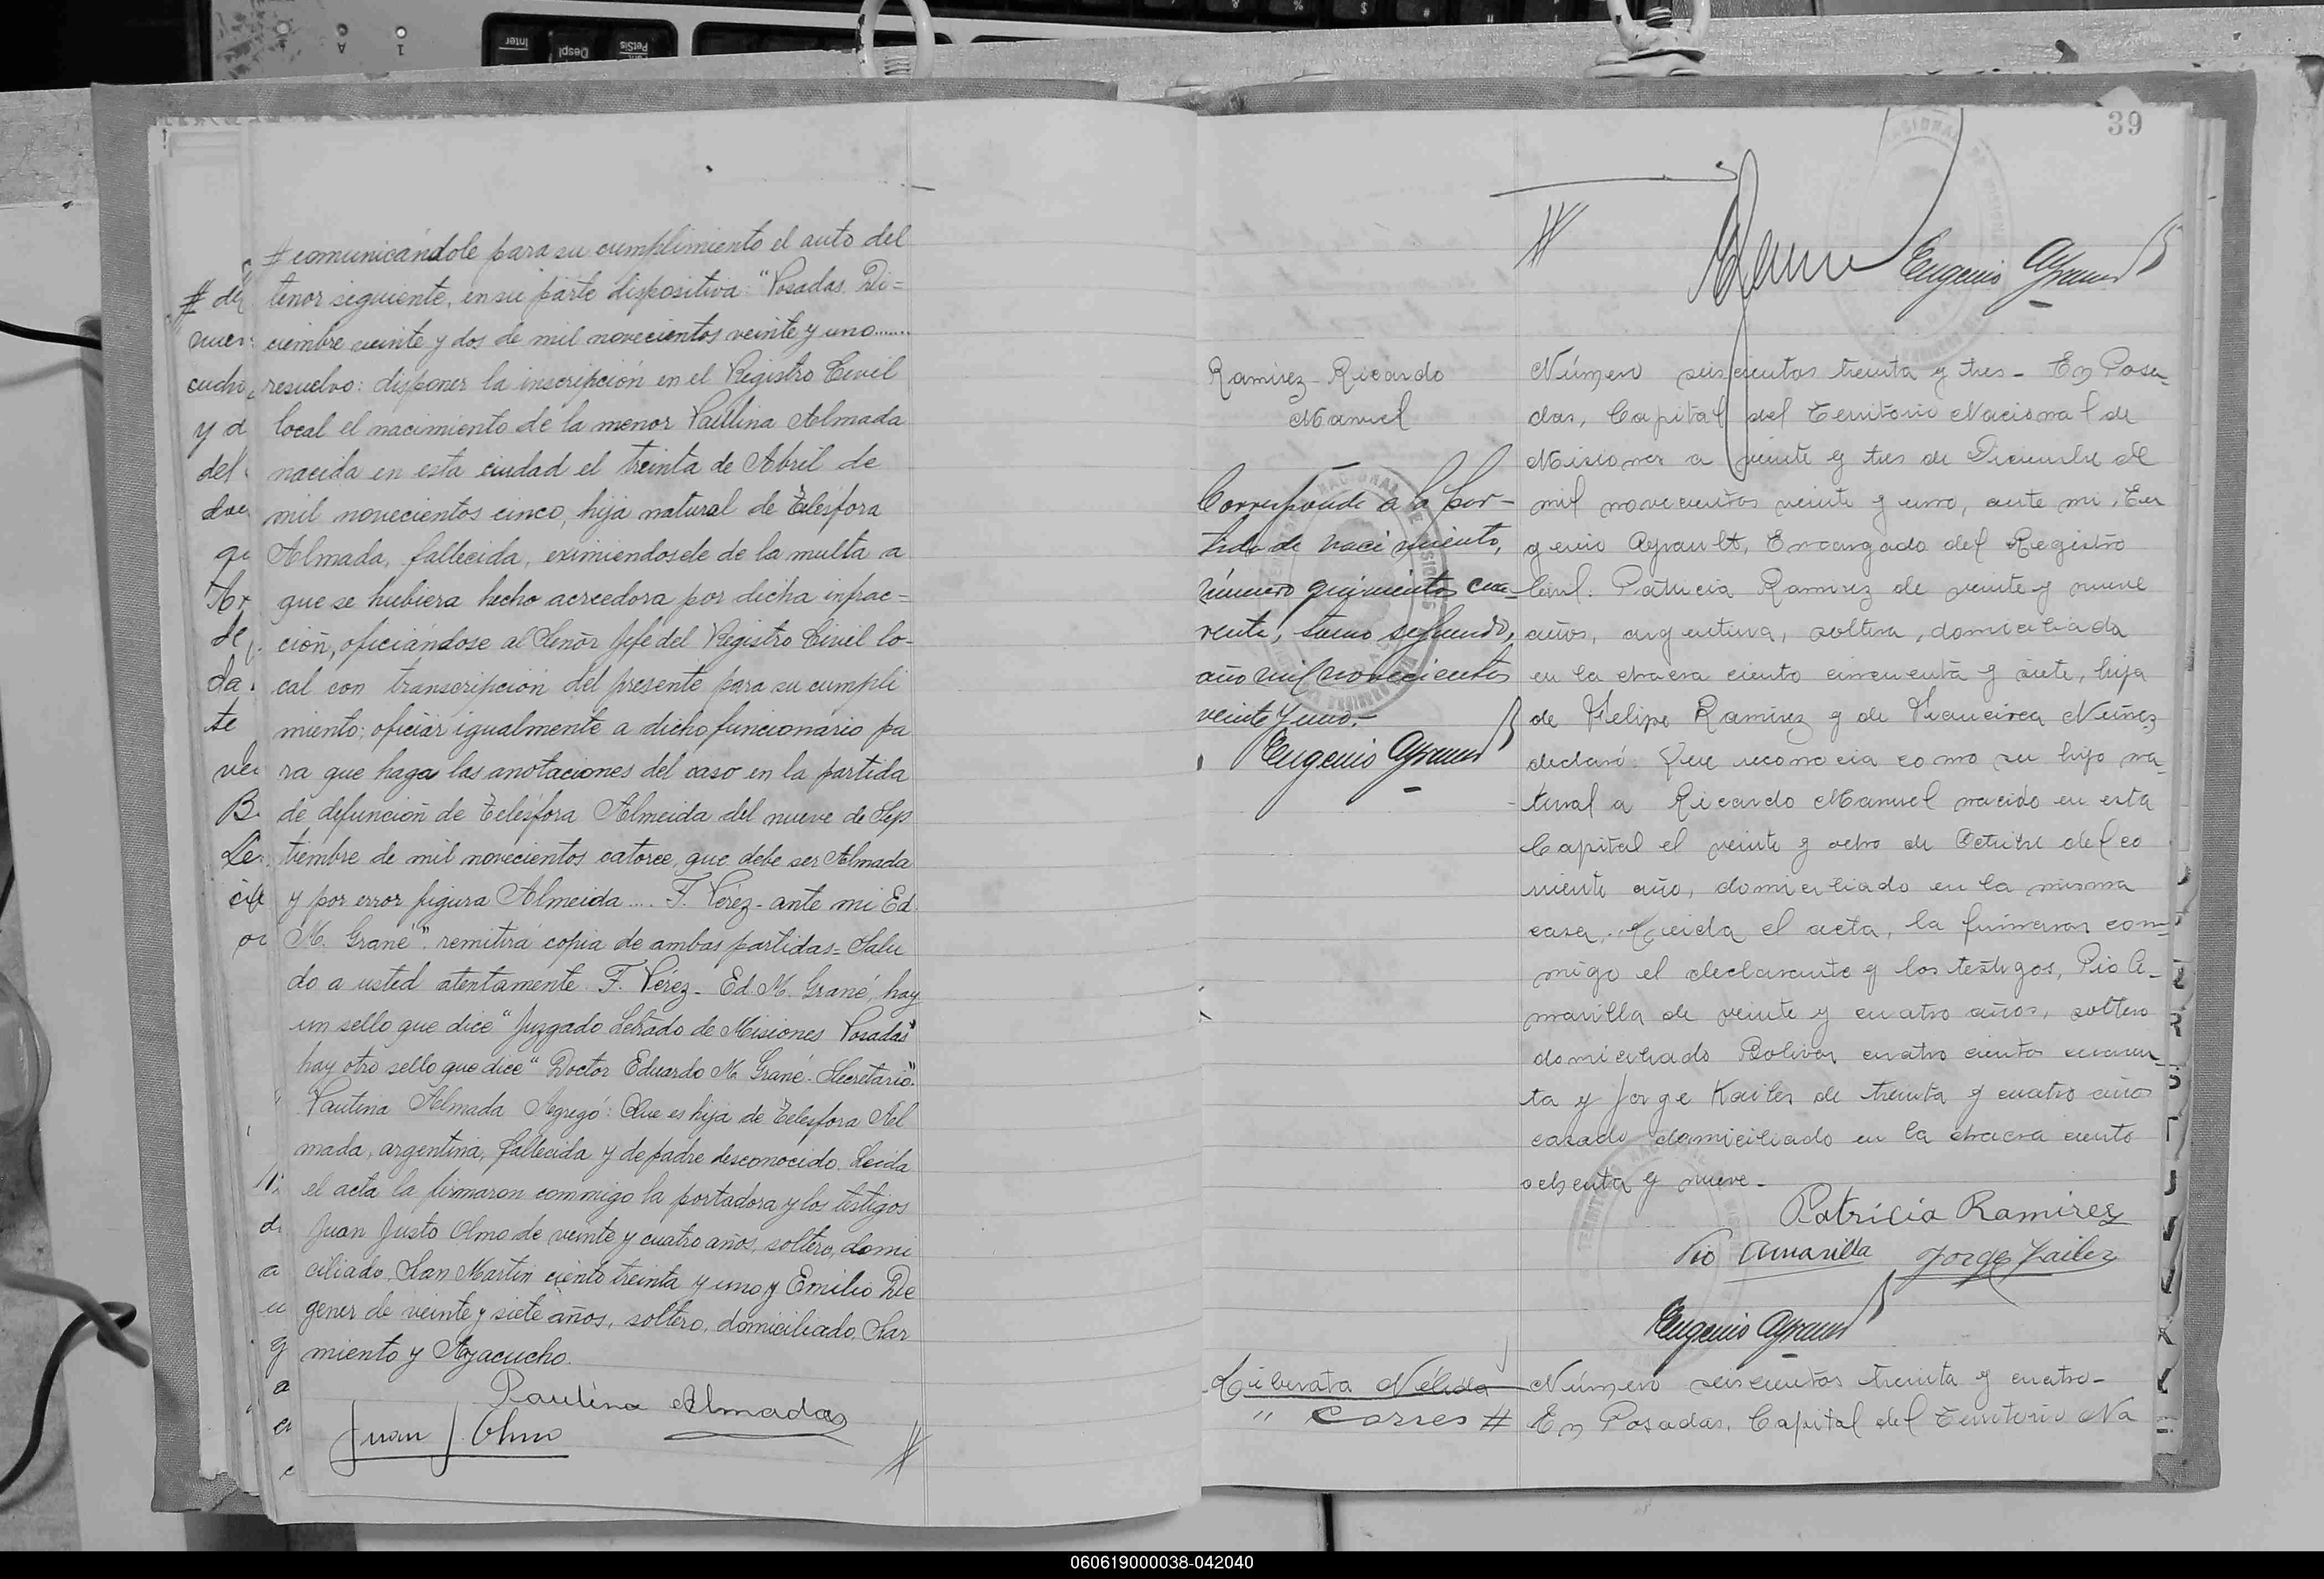 # comunicándole para su cumplimiento el auto del
tenor siguiente, en su parte dispositiva: "Posadas. Di=
ciembre veinte y dos de mil novecientos veinte y uno.......
resuelvo: disponer la inscripción en el Registro Civil
local el nacimiento de la menor Paulina Almada
nacida en esta ciudad el treinta de Abril de
mil novecientos cinco, hija natural de Telésfora
Almada, fallecida, eximiendosele de la multa a
que se hubiera hecho acreedora por dicha infrac=
ción, oficiándose al Señor Jefe del Registro Civil lo-
cal con transcripción del presente para su cumpli
miento; oficiar igualmente a dicho funcionario pa
ra que haga las anotaciones del caso en la partida
de defunción de Telésfora Almeida del nueve de Sep
tiembre de mil novecientos catorce, que debe ser Almada
y por error figura Almeida.... F. Pérez - ante mi Ed.
M. Grané". remitirá copia de ambas partidas= Salu
do a usted atentamente. F. Pérez - Ed. M. Grané, hay
un sello que dice "Juzgado Letrado de Misiones Posadas"
hay otro sello que dice "Doctor Eduardo M. Grané - Secretario".
Paulina Almada Agregó: Que es hija de Telesfora Al
mada, argentina, fallecida y de padre desconocido. Leida
el acta la firmaron conmigo la portadora y los testigos
Juan Justo Olmo de veinte y cuatro años, soltero, domi
ciliado, San Martin ciento treinta y uno y Emilio De
gener de veinte y siete años, soltero, domiciliado, Sar
miento y Ayacucho.
Paulina Almada
Juan J. Olmo
#
39
#
Eugenio Ayrault
Ramirez - Ricardo
Manuel
Corresponde a la par-
tida de nacimiento,
número quinientos cua-
renta, tomo segundo,
año mil novecientos
veinte y uno.-
Eugenio Ayrault
Número seiscientos treinta y tres - En Posa-
das, Capital del Territorio Nacional de
Misiones a veinte y tres de Diciembre de
mil novecientos veinte y uno, ante mi, Eu
genio Ayrault, Encargado del Registro
Civil: Patricia Ramirez de veinte y nueve
años, argentina, soltera, domiciliada
en la chacra ciento cincuenta y siete, hija
de Felipe Ramirez y de Francisca Nuñez
declaró: Que reconocia como su hijo na-
tural a Ricardo Manuel nacido en esta
Capital el veinte y ocho de Octubre del co
rriente año, domiciliado en la misma
casa. Leida el acta, la firmaron con-
migo el declarante y los testigos, Pio A-
marilla de veinte y cuatro años, soltero
domiciliado Bolivar cuatro cientos cuaren-
ta y Jorge Kailer de treinta y cuatro años
casado domiciliado en la chacra ciento
ochenta y nueve -
Patricia Ramirez
Pio Amarilla Jorge Kailer
Eugenio Ayrault
Liberata Nélida
" Corres #
Número seiscientos treinta y cuatro-
En Posadas, Capital del Territorio Na
060619000038-042040